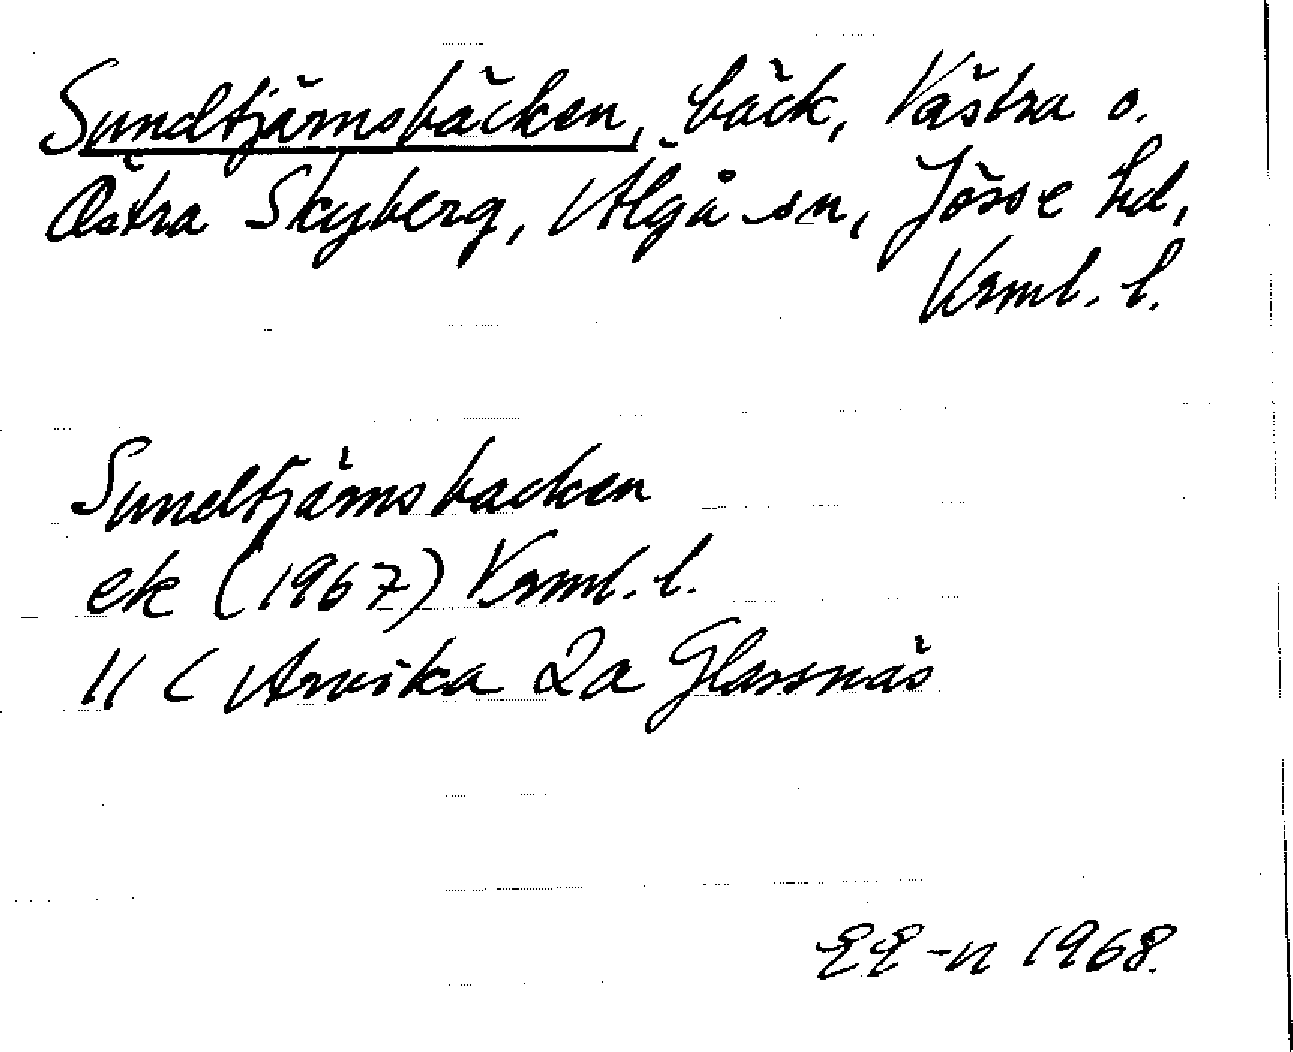 Sundtjärnsbäcken, bäck, Västra o.
Östra Skyberg, Älgå sn, Jösse hd,
Vrml. l.
Sundtjärnsbacken
ek (1967) Vrml. l.
11 C Arvika 2a Glassnäs
EE-n 1968.